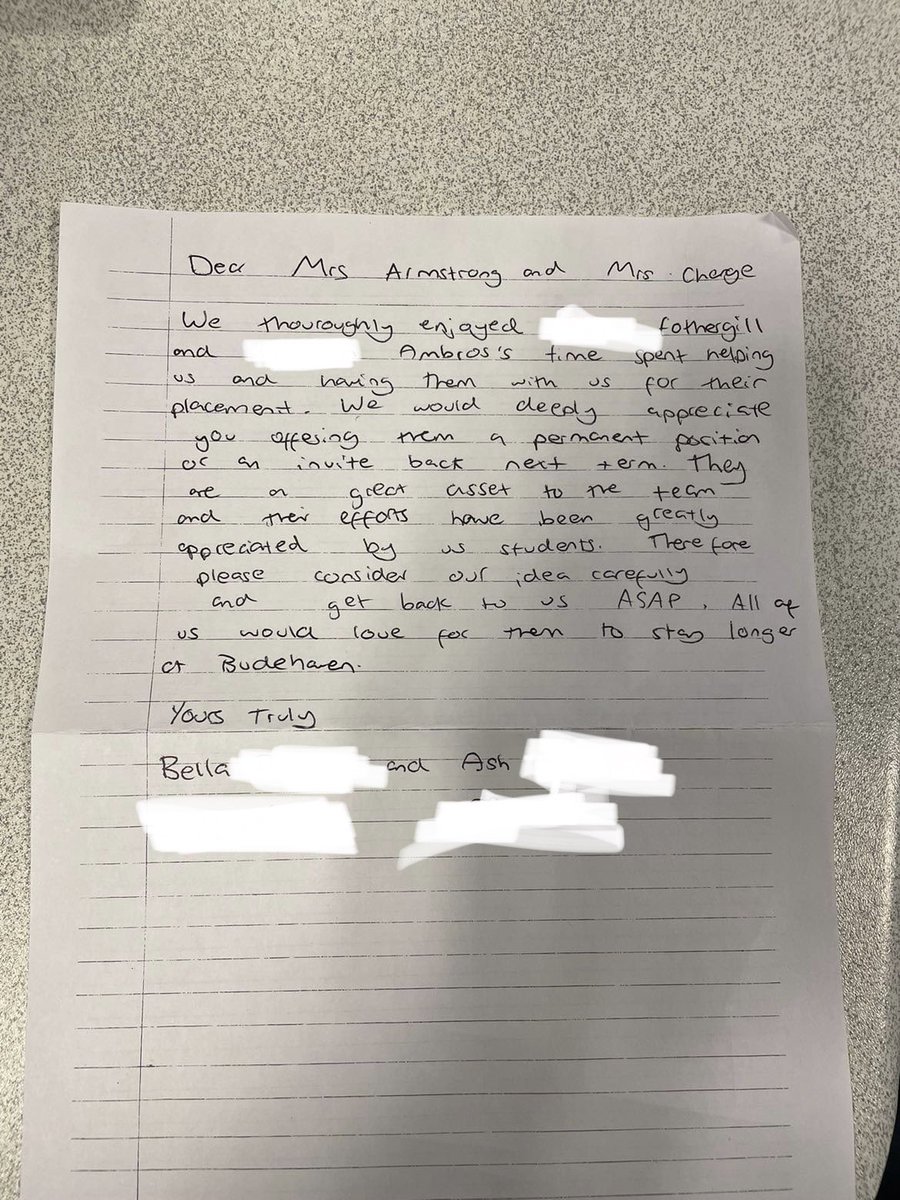 Dear Mrs Armstrong and Mrs Charge
We thouroughly enjoyed fothergill
and Ambros's time spent helping
us and having them with us for their
placement. We would deeply appreciate
you offesing them a permanent position
or an invite back next term. They
are a great asset to the team
and their efforts have been greatly
appreciated by us students. Therefore
please consider our idea carefully
and get back to us ASAP. All of
us would love for them to stay longer
at Budehaven.
Yours Truly
Bella and Ash